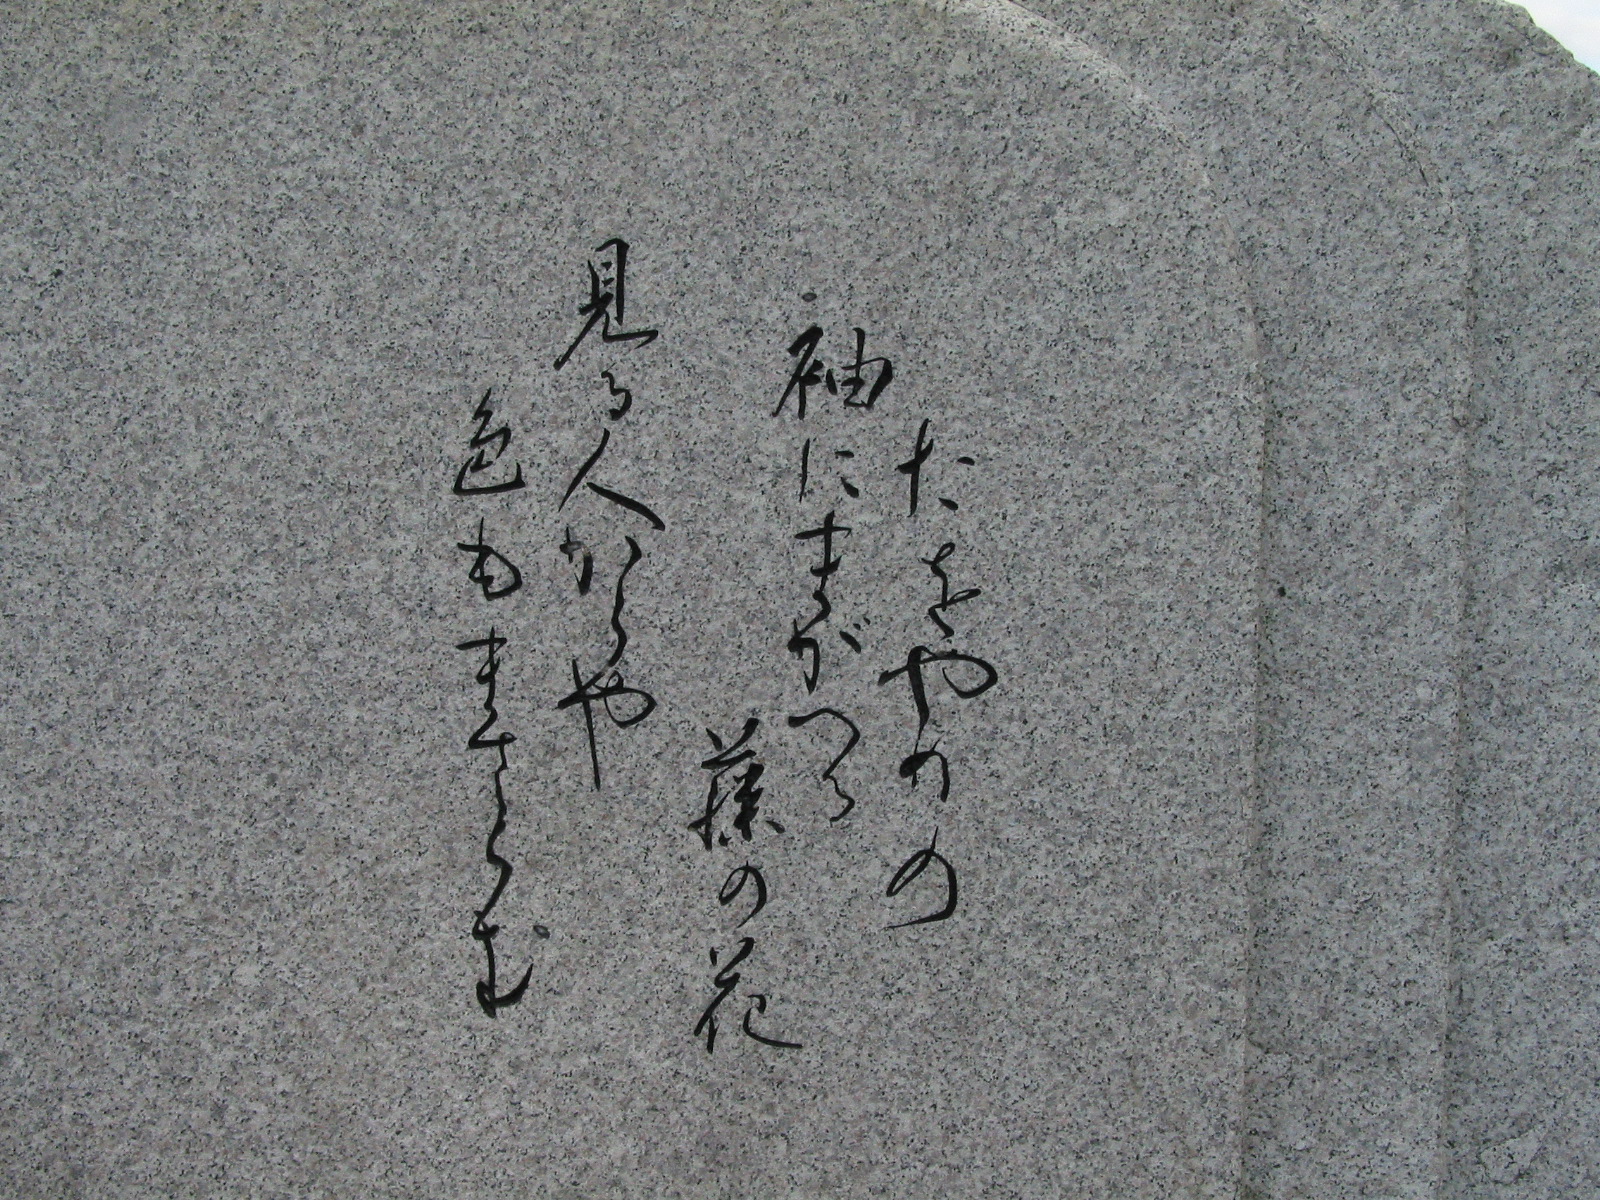 たをやめの
袖にまがつる
藤の花
見る人からや
色もまさらむ